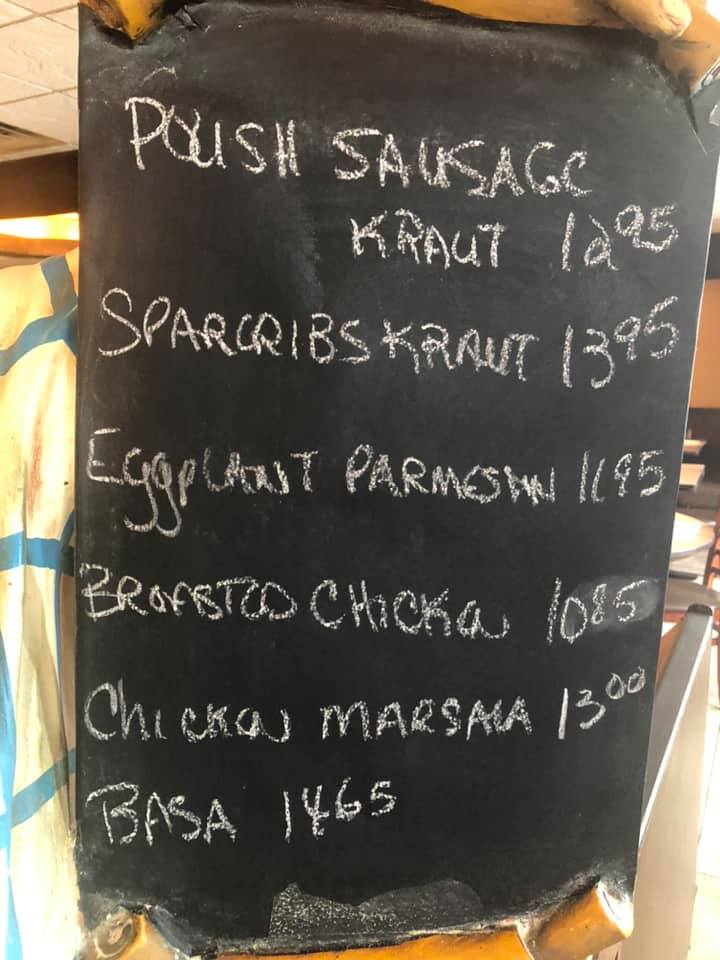 POLISH SAUSAGE
KRAUT 12 95
SPARERIBS KRAUT 13 95
EggPLANT PARMESAN 11 95
BROASTED CHICKEN 10 85
CHICKEN MARSALA 13 00
BASA 14 65